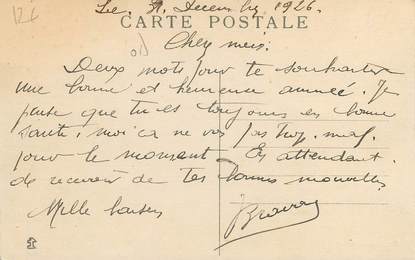 Le 31 Decembre 1926.
CARTE POSTALE
Cher
Deux mots pour te souhaiter
une bonne et heureuse année. Je
pense que tu es toujours en bonne
santé, moi ca ne va pas trop mal
pour le moment En attendant.
de recevoir de tes bonnes nouvelles
Mille baisers